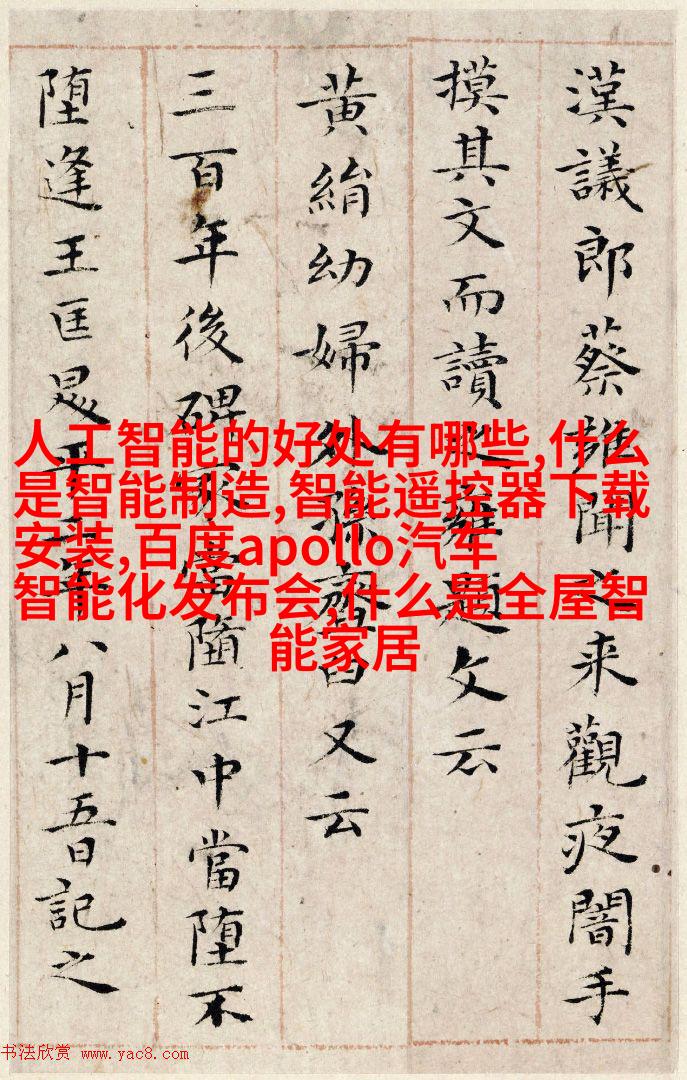 漢議郎蔡雍聞之来觀夜闇手
摸其文而讀之雍題文云
黄絹幼婦外孫臼又云
三百年後碑冢當江中當堕不
堕逢王匡年八月十五日記之
人工智能的好处有哪些,什么
是智能制造,智能遥控器下载
安装,百度apollo汽车
智能化发布会,什么是全屋智
能家居
书法欣赏 www.yac8.com